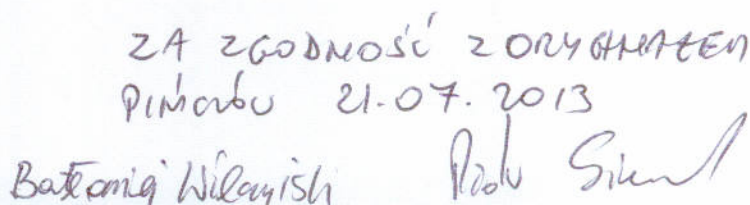 ZA ZGODNOŚĆ Z ORYGINAŁEM
PIŃCZÓW 21.07.2013
Bartłomiej Piotr